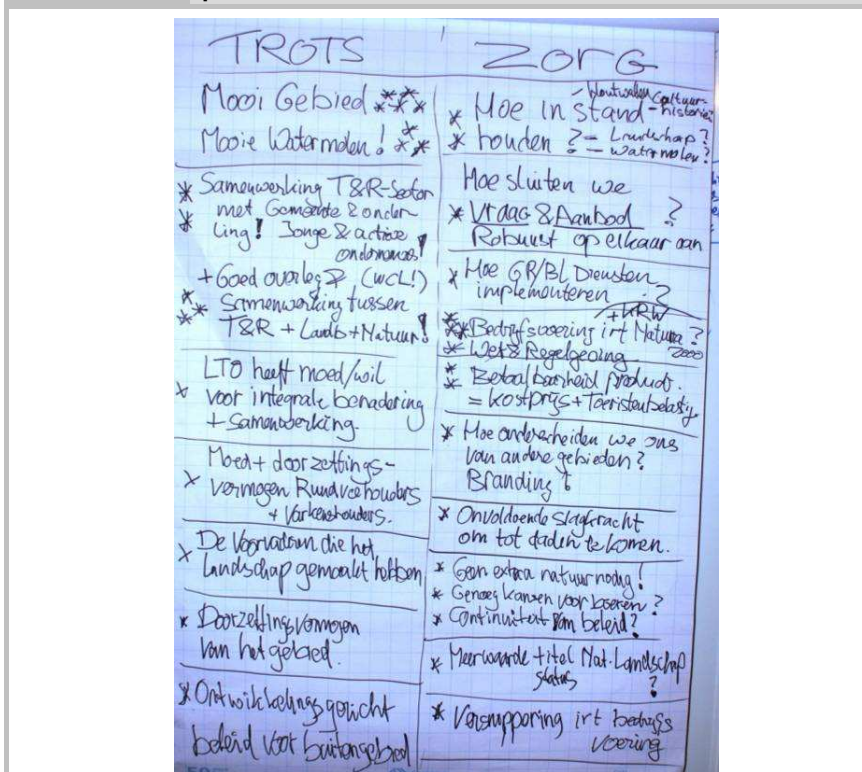 TROTS
Mooi Gebied ***
***
Mooie Watermolen! ***
* Samenwerking T&R-Sector
* met Gemeente & onder-
ling! Jonge & actieve
ondernemers!
+ Goed overleg (WCL!)
* Samenwerking tussen
** T&R + Landb + Natuur!
LTO heeft moed/wil
* voor integrale benadering
+ Samenwerking.
Moed + doorzettings-
* vermogen Rundveehouders
+ Varkenshouders.
* De Voorvaderen die het
Landschap gemaakt hebben
* Doorzettingsvermogen
van het gebied.
* Ontwikkelingsgericht
beleid voor buitengebied
ZORG
- Houtwallen
- Cultuur-
historie?
* Hoe in stand
* houden? - Landschap?
- Watermolen?
Hoe sluiten we
* Vraag & Aanbod ?
Robuust op elkaar aan
* Hoe GR/BL Diensten
implementeren ?
+ KRW
** Bedrijfsvoering irt Natura ?
2000
* Wet & Regelgeving
* Betaalbaarheid product.
= kostprijs + Toeristenbelasting
* Hoe onderscheiden we ons
van andere gebieden?
Branding
* Onvoldoende slagkracht
om tot daden te komen.
* Geen extra natuur nodig!
* Genoeg kansen voor boeren?
* Continuiteit van beleid?
* Meerwaarde titel Nat. Landschap
status ?
* Versnippering irt bedrijfs
voering